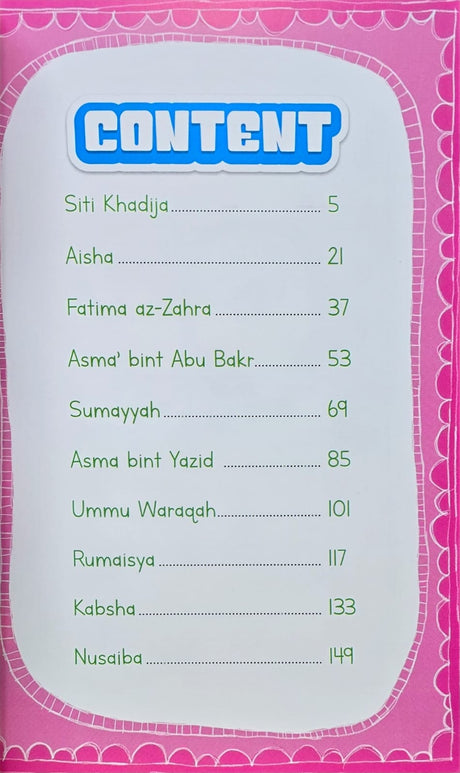 CONTENT
Siti Khadija.................................................. 5
Aisha .................................................................. 21
Fatima az-Zahra ................................... 37
Asma' bint Abu Bakr..................... 53
Sumayyah.................................................... 69
Asma bint Yazid ................................ 85
Ummu Waraqah.................................. 101
Rumaisya ...................................................... 117
Kabsha............................................................. 133
Nusaiba .......................................................... 149